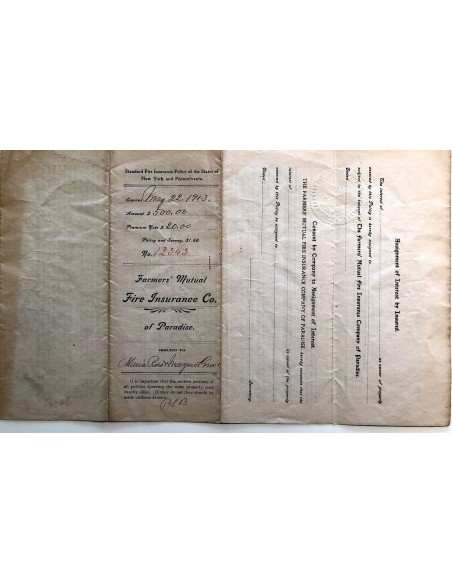 Standard Fire Insurance Policy of the States of
New York and Pennsylvania.
Expires May 22, 1913.
Amount $ 500.00
Premium Note $ 20.00
Policy and Survey, $1.50
No. 12343
Farmers' Mutual
Fire Insurance Co.
of Paradise.
ISSUED TO
It is important that the written portions of
all policies covering the same property read
exactly alike. If they do not they should be
made uniform at once.
Assignment of Interest by Insured.
The interest of
as owner of property
covered by this Policy is hereby assigned to
subject to the consent of The Farmers' Mutual Fire Insurance Company of Paradise.
Dated
Consent by Company to Assignment of Interest.
THE FARMERS' MUTUAL FIRE INSURANCE COMPANY OF PARADISE hereby consents that the
interest of
as owner of the property
covered by this Policy be assigned to
Dated
Secretary.